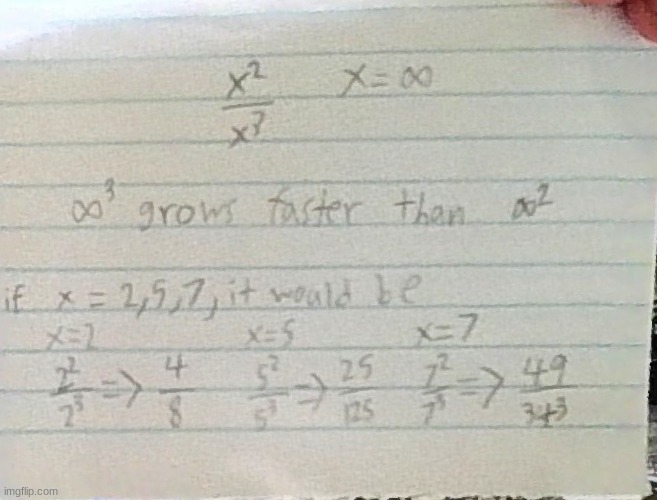 x²/x³ x=∞
∞³ grows faster than ∞²
if x = 2,5,7, it would be
x=2 x=5 x=7
2²/2³ => 4/8 5²/5³ => 25/125 7²/7³ => 49/343
imgflip.com